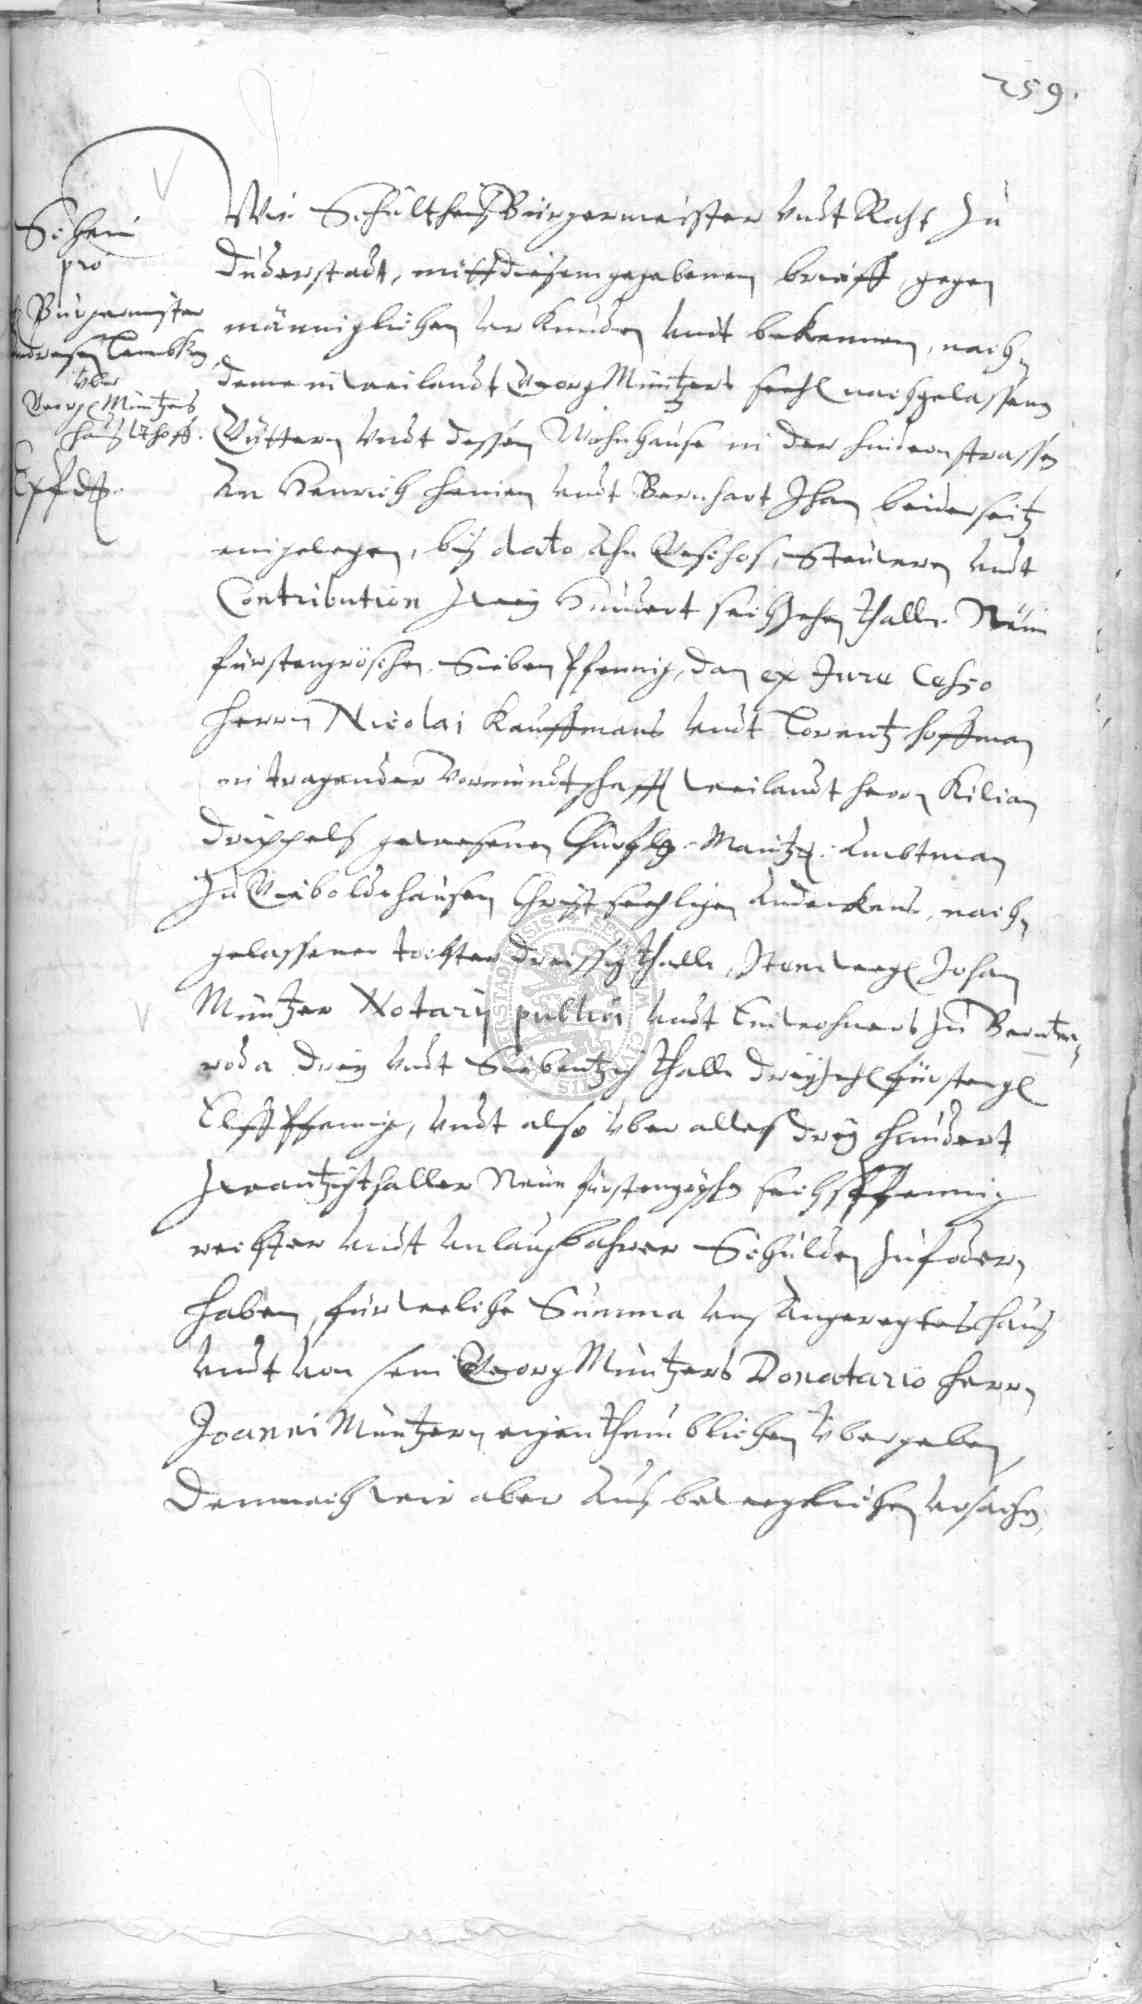 259.
Schein
pro
H Burgermeister
Andresen Lembken
vber
Georg Müntzers
Hauß vndt Hoff.
Wir Schultheiß Bürgermeister vndt Raht zu
Duderstadt, mitt diesem gegebenen brieff gegen
männiglichen vrkunden vndt bekennen, nach,
deme in weilandt Georg Müntzers seehl nachgelassene
Güttern vndt dessen Wohnhause in der hindern strassen
An Henrich Heinen vndt Bernhart Jhan beiderseitz
eingelegen, biß dato Ahn Geschos, Steuwren vndt
Contribution zwey Hundert sechßzehen thaller Neun
fürstengröschen Sieben Pfennig, dan ex Jure Cesso
Herrn Nicolai Kauffmans vndt Lorentz Hoffman
in tragender Vormundtschafft weilandt Herrn Kilian
Drippels gewesenen Churfl. Maintz. Ambtman
zu Gieboldehausen Christseehligen Andenckens, nach,
gelassener tochter dreissig thaller, Item wegl Johan
Müntzer Notarij publici vndt Einwohners zu Berntze,
roda drey vndt Siebentzig thaller dreyzehl fürstengl
Elff Pfennig, vndt also vber alles drey hundert
zwantzig thaller Neun fürstengrschn sechs Pfennig
rechter vndt vnlaugbahrer Schulden zufodern
haben, für welche Summa vns Angeregtes hauß
vndt von sein Georg Müntzers Donatario Herrn
Joanni Müntzern eigenthumblichen vbergeben,
Demnach wir aber Auß beweglichen vrsachen,